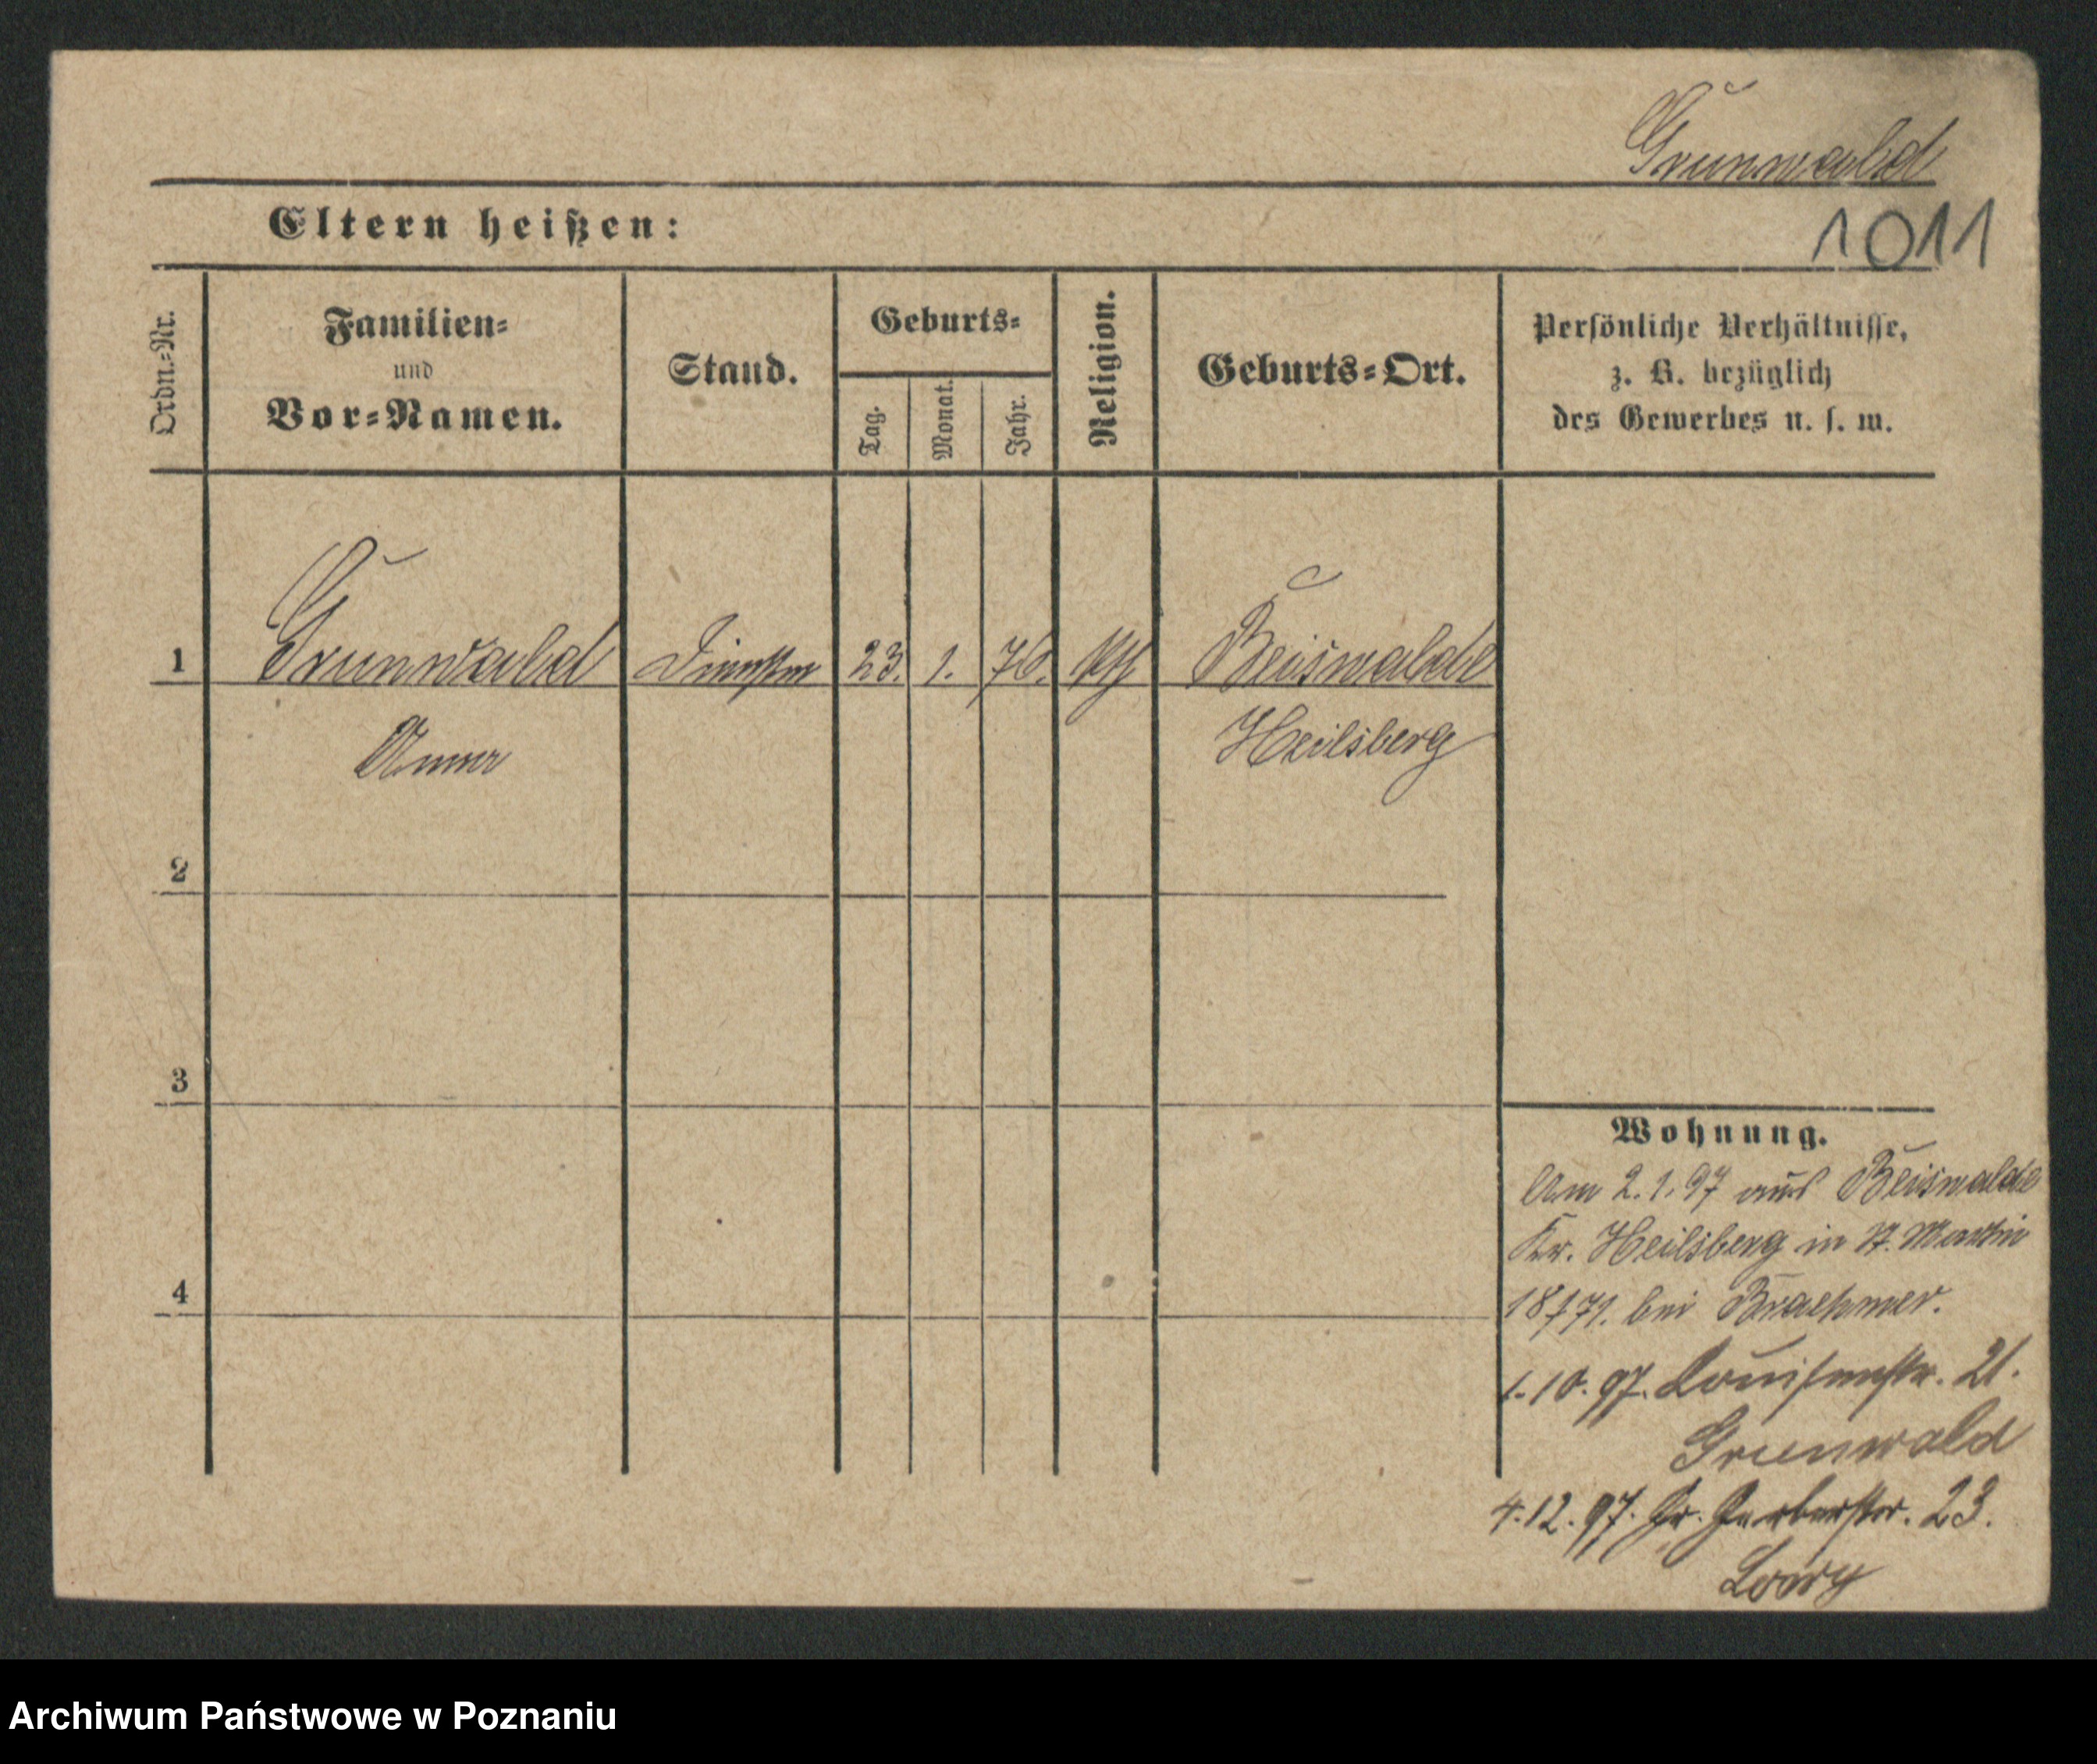 Grunwald
Eltern heißen:
1011
Ordn.-Nr.
Familien-
und
Vor-Namen.
Stand.
Geburts-
Tag.
Monat.
Jahr.
Religion.
Geburts-Ort.
Persönliche Verhältnisse,
z. B. bezüglich
des Gewerbes u. s. w.
1 Grunwald 23. 1. 76. kth Beiswalde
Anna Heilsberg
2
3
4
Wohnung.
Am 2.1.97 aus Beiswalde
Kr. Heilsberg in St. Martin
bei Braehmer.
1.10.97. Louisenstr. 21.
Grunwald
4.12.97. Gr. Gerberstr. 23.
Archiwum Państwowe w Poznaniu